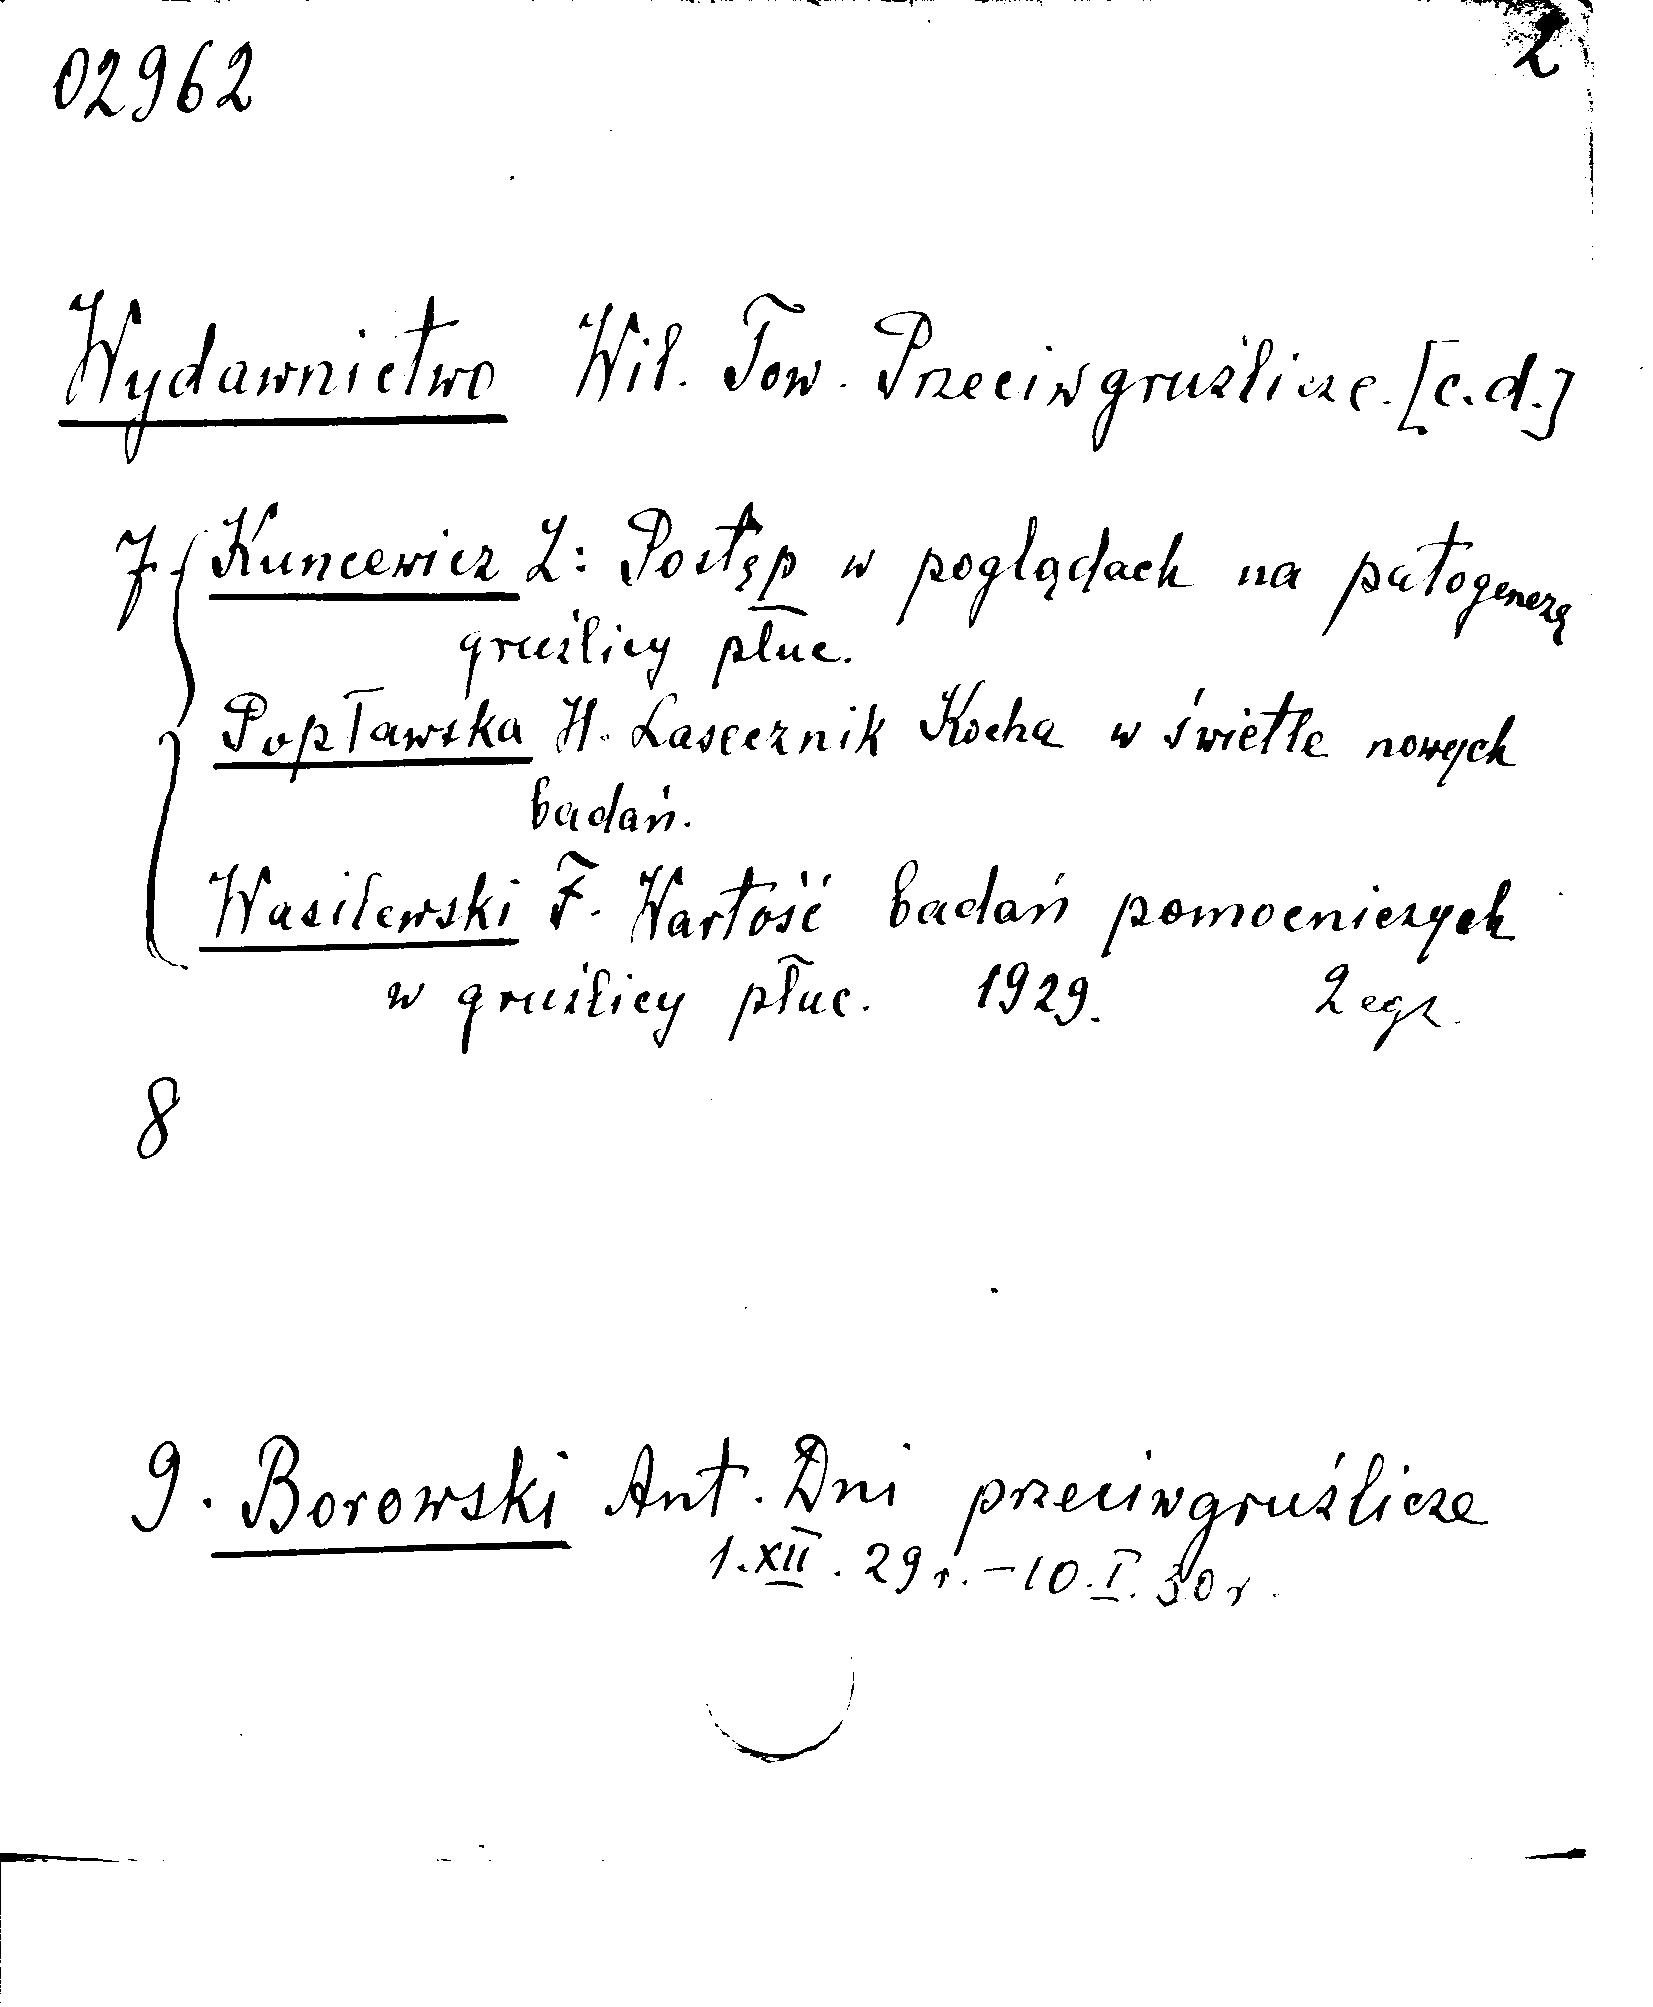 02962
2
Wydawnictwo Wil. Tow. Przeciwgruźlicze. [c.d.]
7. Kuncewicz Z: Postęp w poglądach na patogenezą
gruźlicy płuc.
Popławska H. Lasecznik Kocha w świetle nowych
badań.
Wasilewski F. Wartość badań pomocniczych
w gruźlicy płuc. 1929. 2 egz.
8
9. Borowski Ant. Dni przeciwgruźlicze
1.XII.29 r. – 10.I.30 r.